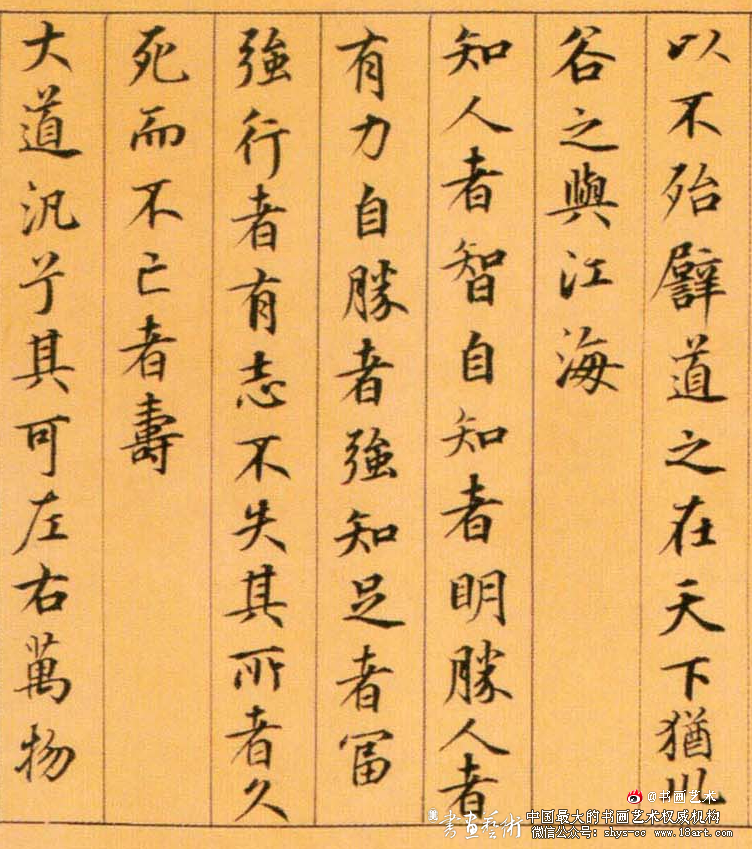 以不殆譬道之在天下猶川
谷之與江海
知人者智自知者明勝人者
有力自勝者強知足者冨
強行者有志不失其所者久
死而不亡者壽
大道汎兮其可左右萬物
@书画艺术
書畫藝術
中国最大的书画艺术权威机构
微信公众号: shys-cc www.18art.com